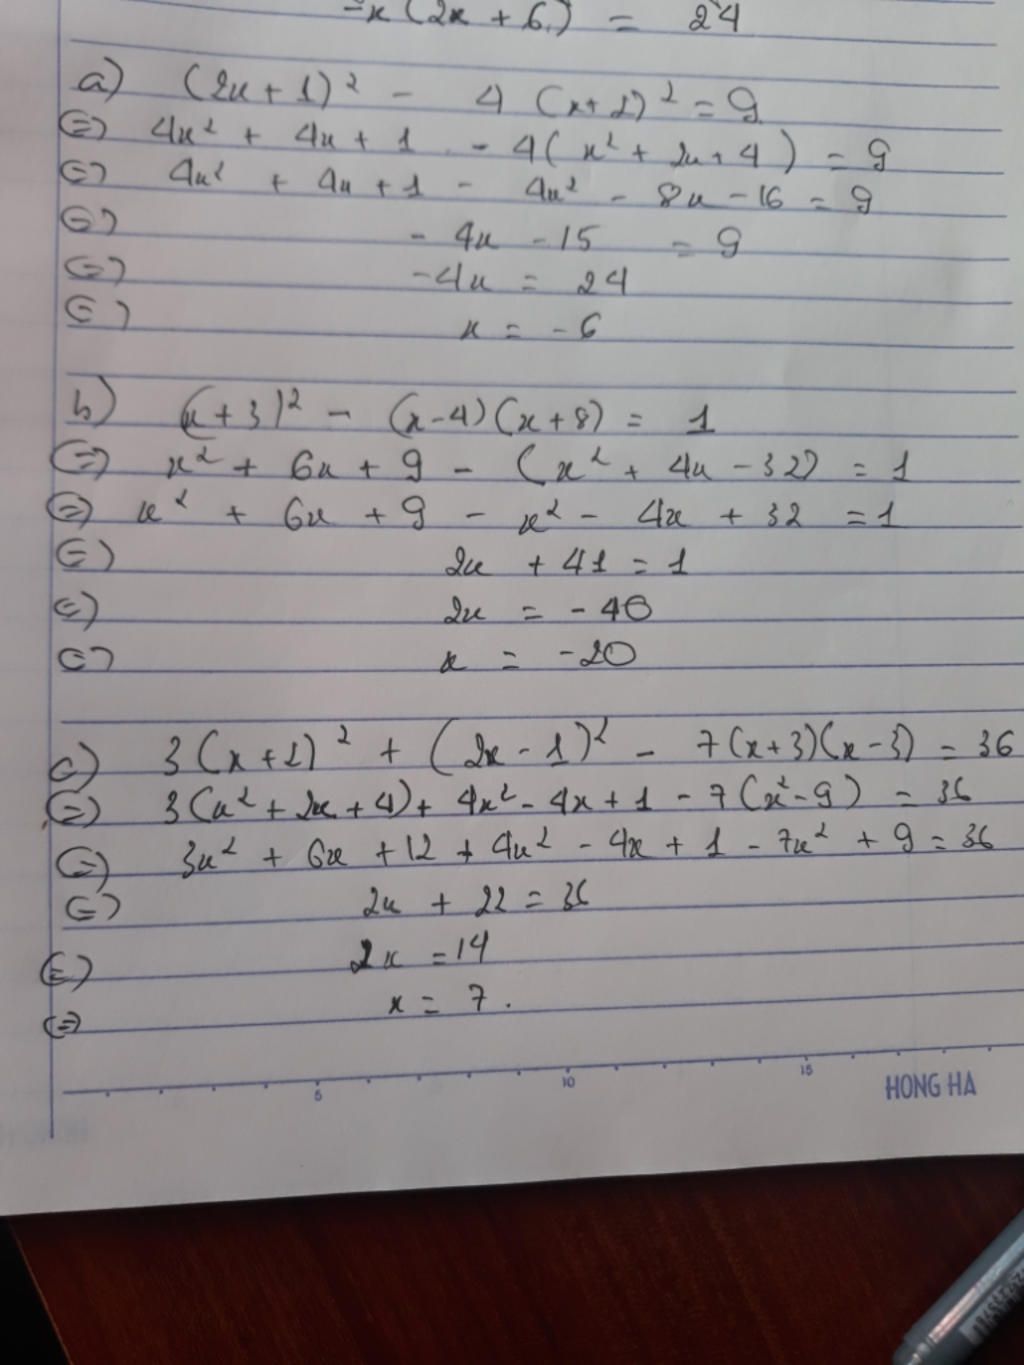 -x(2x + 6) = 24
a) (2x + 1)² - 4(x+2)² = 9
(=) 4x² + 4x + 1 - 4(x² + 2x + 4) = 9
(=) 4x² + 4x + 1 - 4x² - 8x - 16 = 9
(=) - 4x - 15 = 9
(=) -4x = 24
(=) x = - 6
b) (x + 3)² - (x-4)(x+8) = 1
(=) x² + 6x + 9 - (x² + 4x - 32) = 1
(=) x² + 6x + 9 - x² - 4x + 32 = 1
(=) 2x + 41 = 1
(=) 2x = - 40
(=) x = -20
c) 3(x+2)² + (2x - 1)² - 7(x+3)(x-3) = 36
(=) 3(x² + 2x + 4) + 4x² - 4x + 1 - 7(x² - 9) = 36
(=) 3x² + 6x + 12 + 4x² - 4x + 1 - 7x² + 9 = 36
(=) 2x + 22 = 36
(=) 2x = 14
(=) x = 7.
5 10 15
HONG HA